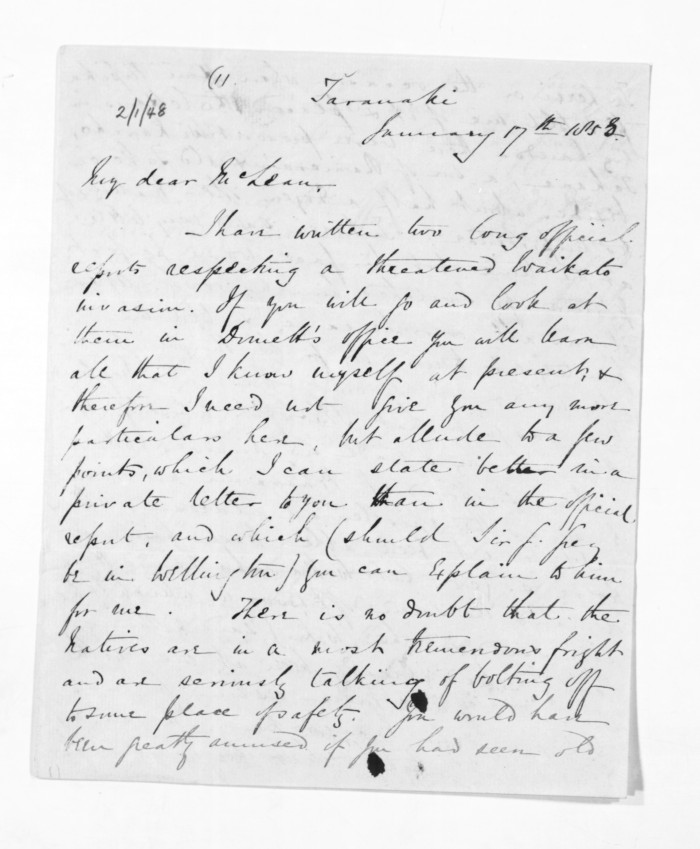 (1).
2/1/48
Taranaki
January 17th 1853.
My dear McLean,
I have written two long official
reports respecting a threatened Waikato
invasion. If you will go and look at
them in Domett's office you will learn
all that I know myself at present, &
therefore I need not give you any more
particulars here, but allude to a few
points, which I can state better in a
private letter to you than in the official
report, and which (should Sir G. Grey
be in Wellington) you can explain to him
for me. There is no doubt that the
Natives are in a most tremendous fright
and are seriously talking of bolting off
to some place of safety. You would have
been greatly amused if you had seen old